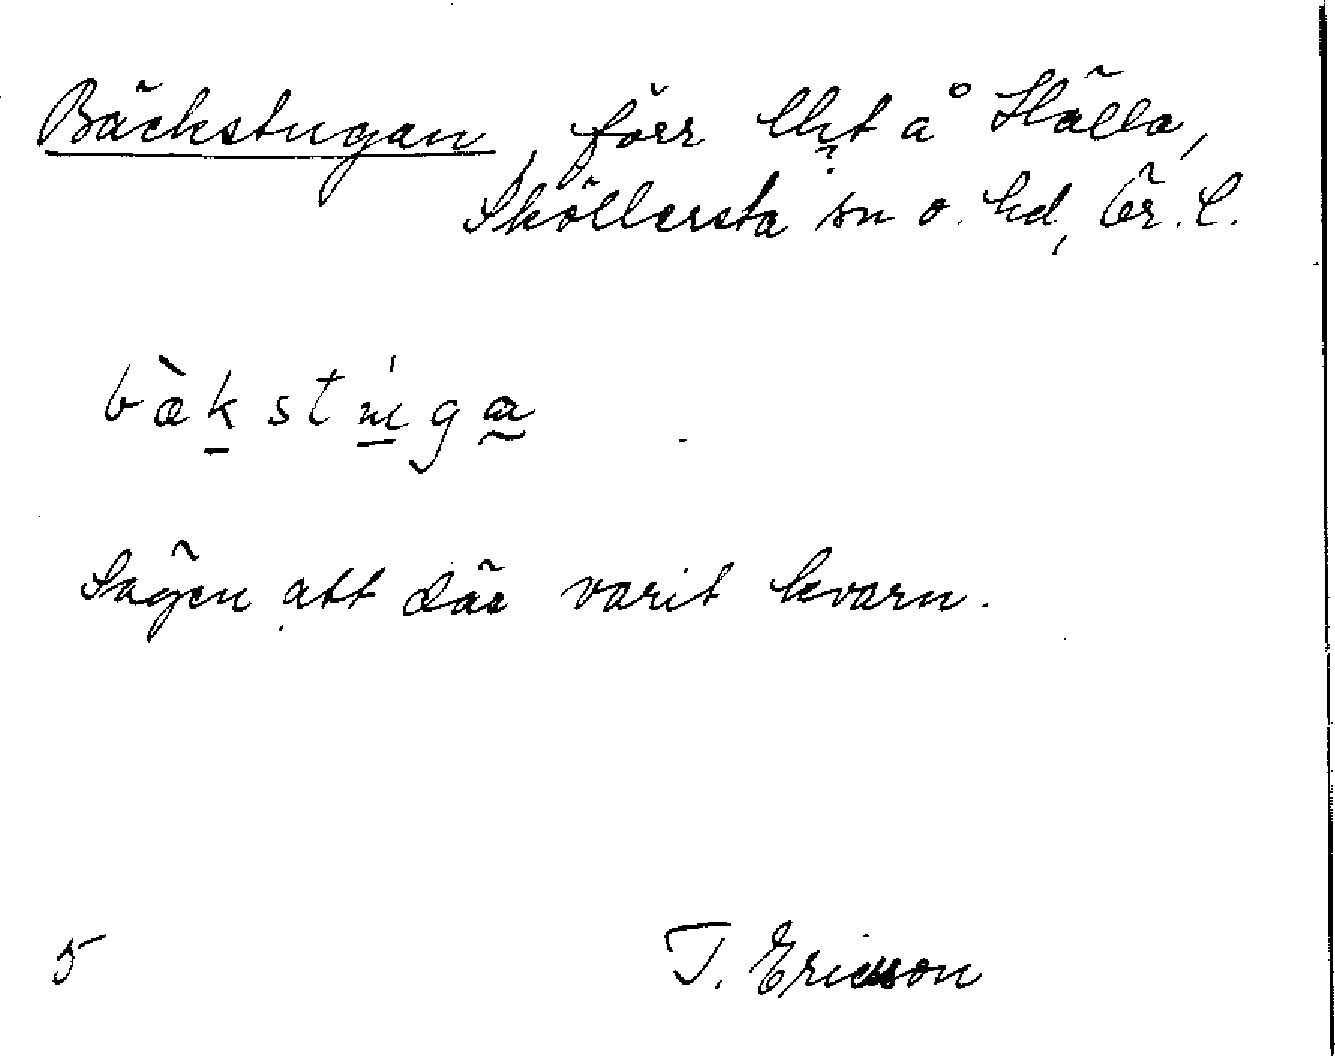 Bäckstugan, förr lht å Hälla,
Sköllersta sn o. hd, Ör. l.
bæ̀kstu̍ga
Sägen att där varit kvarn.
5 T. Ericsson